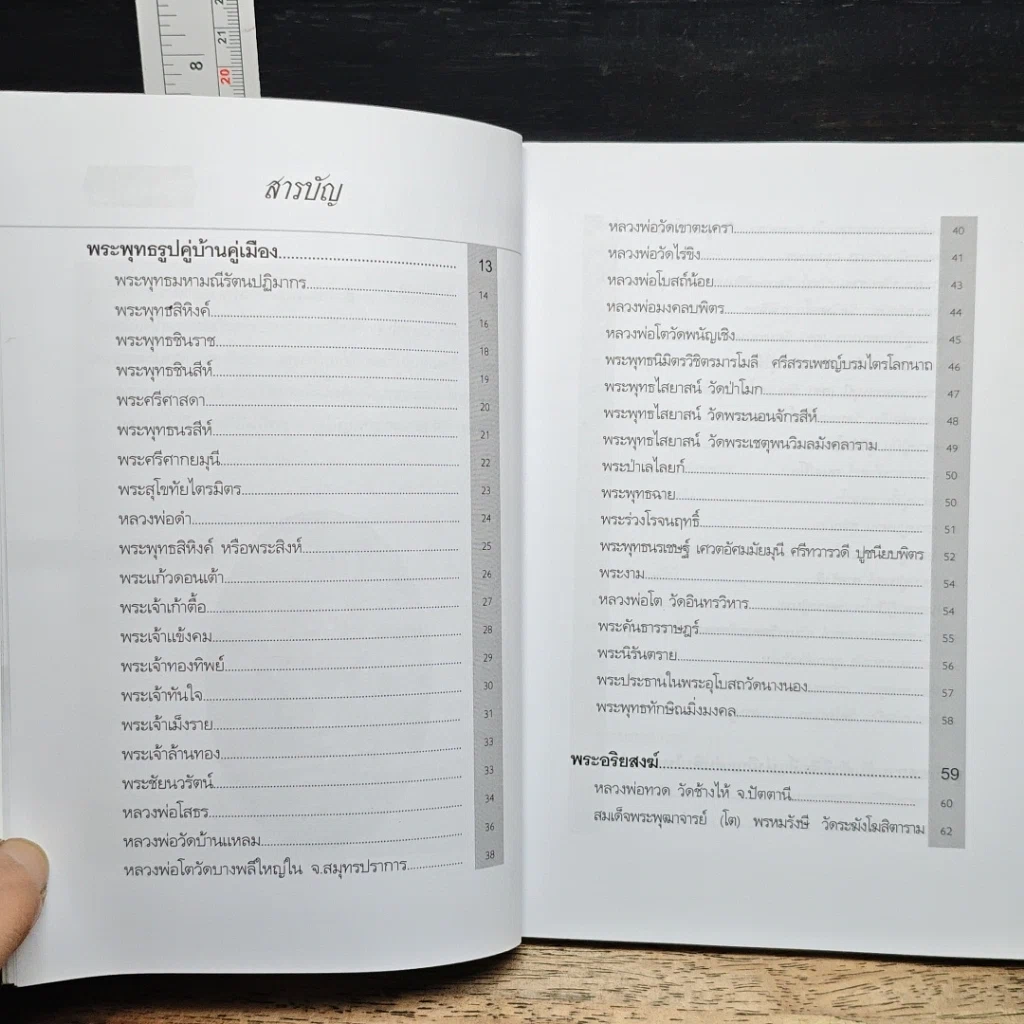 8
20
21
สารบัญ
พระพุทธรูปคู่บ้านคู่เมือง 13
พระพุทธมหามณีรัตนปฏิมากร 14
พระพุทธสิหิงค์ 16
พระพุทธชินราช 18
พระพุทธชินสีห์ 19
พระศรีศาสดา 20
พระพุทธนรสีห์ 21
พระศรีศากยมุนี 22
พระสุโขทัยไตรมิตร 23
หลวงพ่อดำ 24
พระพุทธสิหิงค์ หรือพระสิงห์ 25
พระแก้วดอนเต้า 26
พระเจ้าเก้าตื้อ 27
พระเจ้าแข้งคม 28
พระเจ้าทองทิพย์ 29
พระเจ้าทันใจ 30
พระเจ้าเม็งราย 31
พระเจ้าล้านทอง 33
พระชัยนวรัตน์ 33
หลวงพ่อโสธร 34
หลวงพ่อวัดบ้านแหลม 36
หลวงพ่อโตวัดบางพลีใหญ่ใน จ.สมุทรปราการ 38
หลวงพ่อวัดเขาตะเครา 40
หลวงพ่อวัดไร่ขิง 41
หลวงพ่อโบสถ์น้อย 43
หลวงพ่อมงคลบพิตร 44
หลวงพ่อโตวัดพนัญเชิง 45
พระพุทธนิมิตรวิชิตรมารโมลี ศรีสรรเพชญ์บรมไตรโลกนาถ 46
พระพุทธไสยาสน์ วัดป่าโมก 47
พระพุทธไสยาสน์ วัดพระนอนจักรสีห์ 48
พระพุทธไสยาสน์ วัดพระเชตุพนวิมลมังคลาราม 49
พระป่าเลไลยก์ 50
พระพุทธฉาย 50
พระร่วงโรจนฤทธิ์ 51
พระพุทธนรเชษฐ์ เศวตอัศมมัยมุนี ศรีทวารวดี ปูชนียบพิตร 52
พระงาม 54
หลวงพ่อโต วัดอินทรวิหาร 54
พระคันธารราษฎร์ 55
พระนิรันตราย 56
พระประธานในพระอุโบสถวัดนางนอง 57
พระพุทธทักษิณมิ่งมงคล 58
พระอริยสงฆ์ 59
หลวงพ่อทวด วัดช้างไห้ จ.ปัตตานี 60
สมเด็จพระพุฒาจารย์ (โต) พรหมรังษี วัดระฆังโฆสิตาราม 62